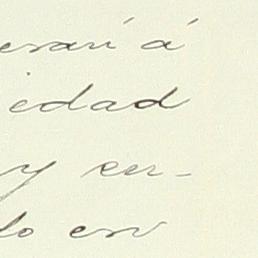 esarí á
iedad
y en-
lo en